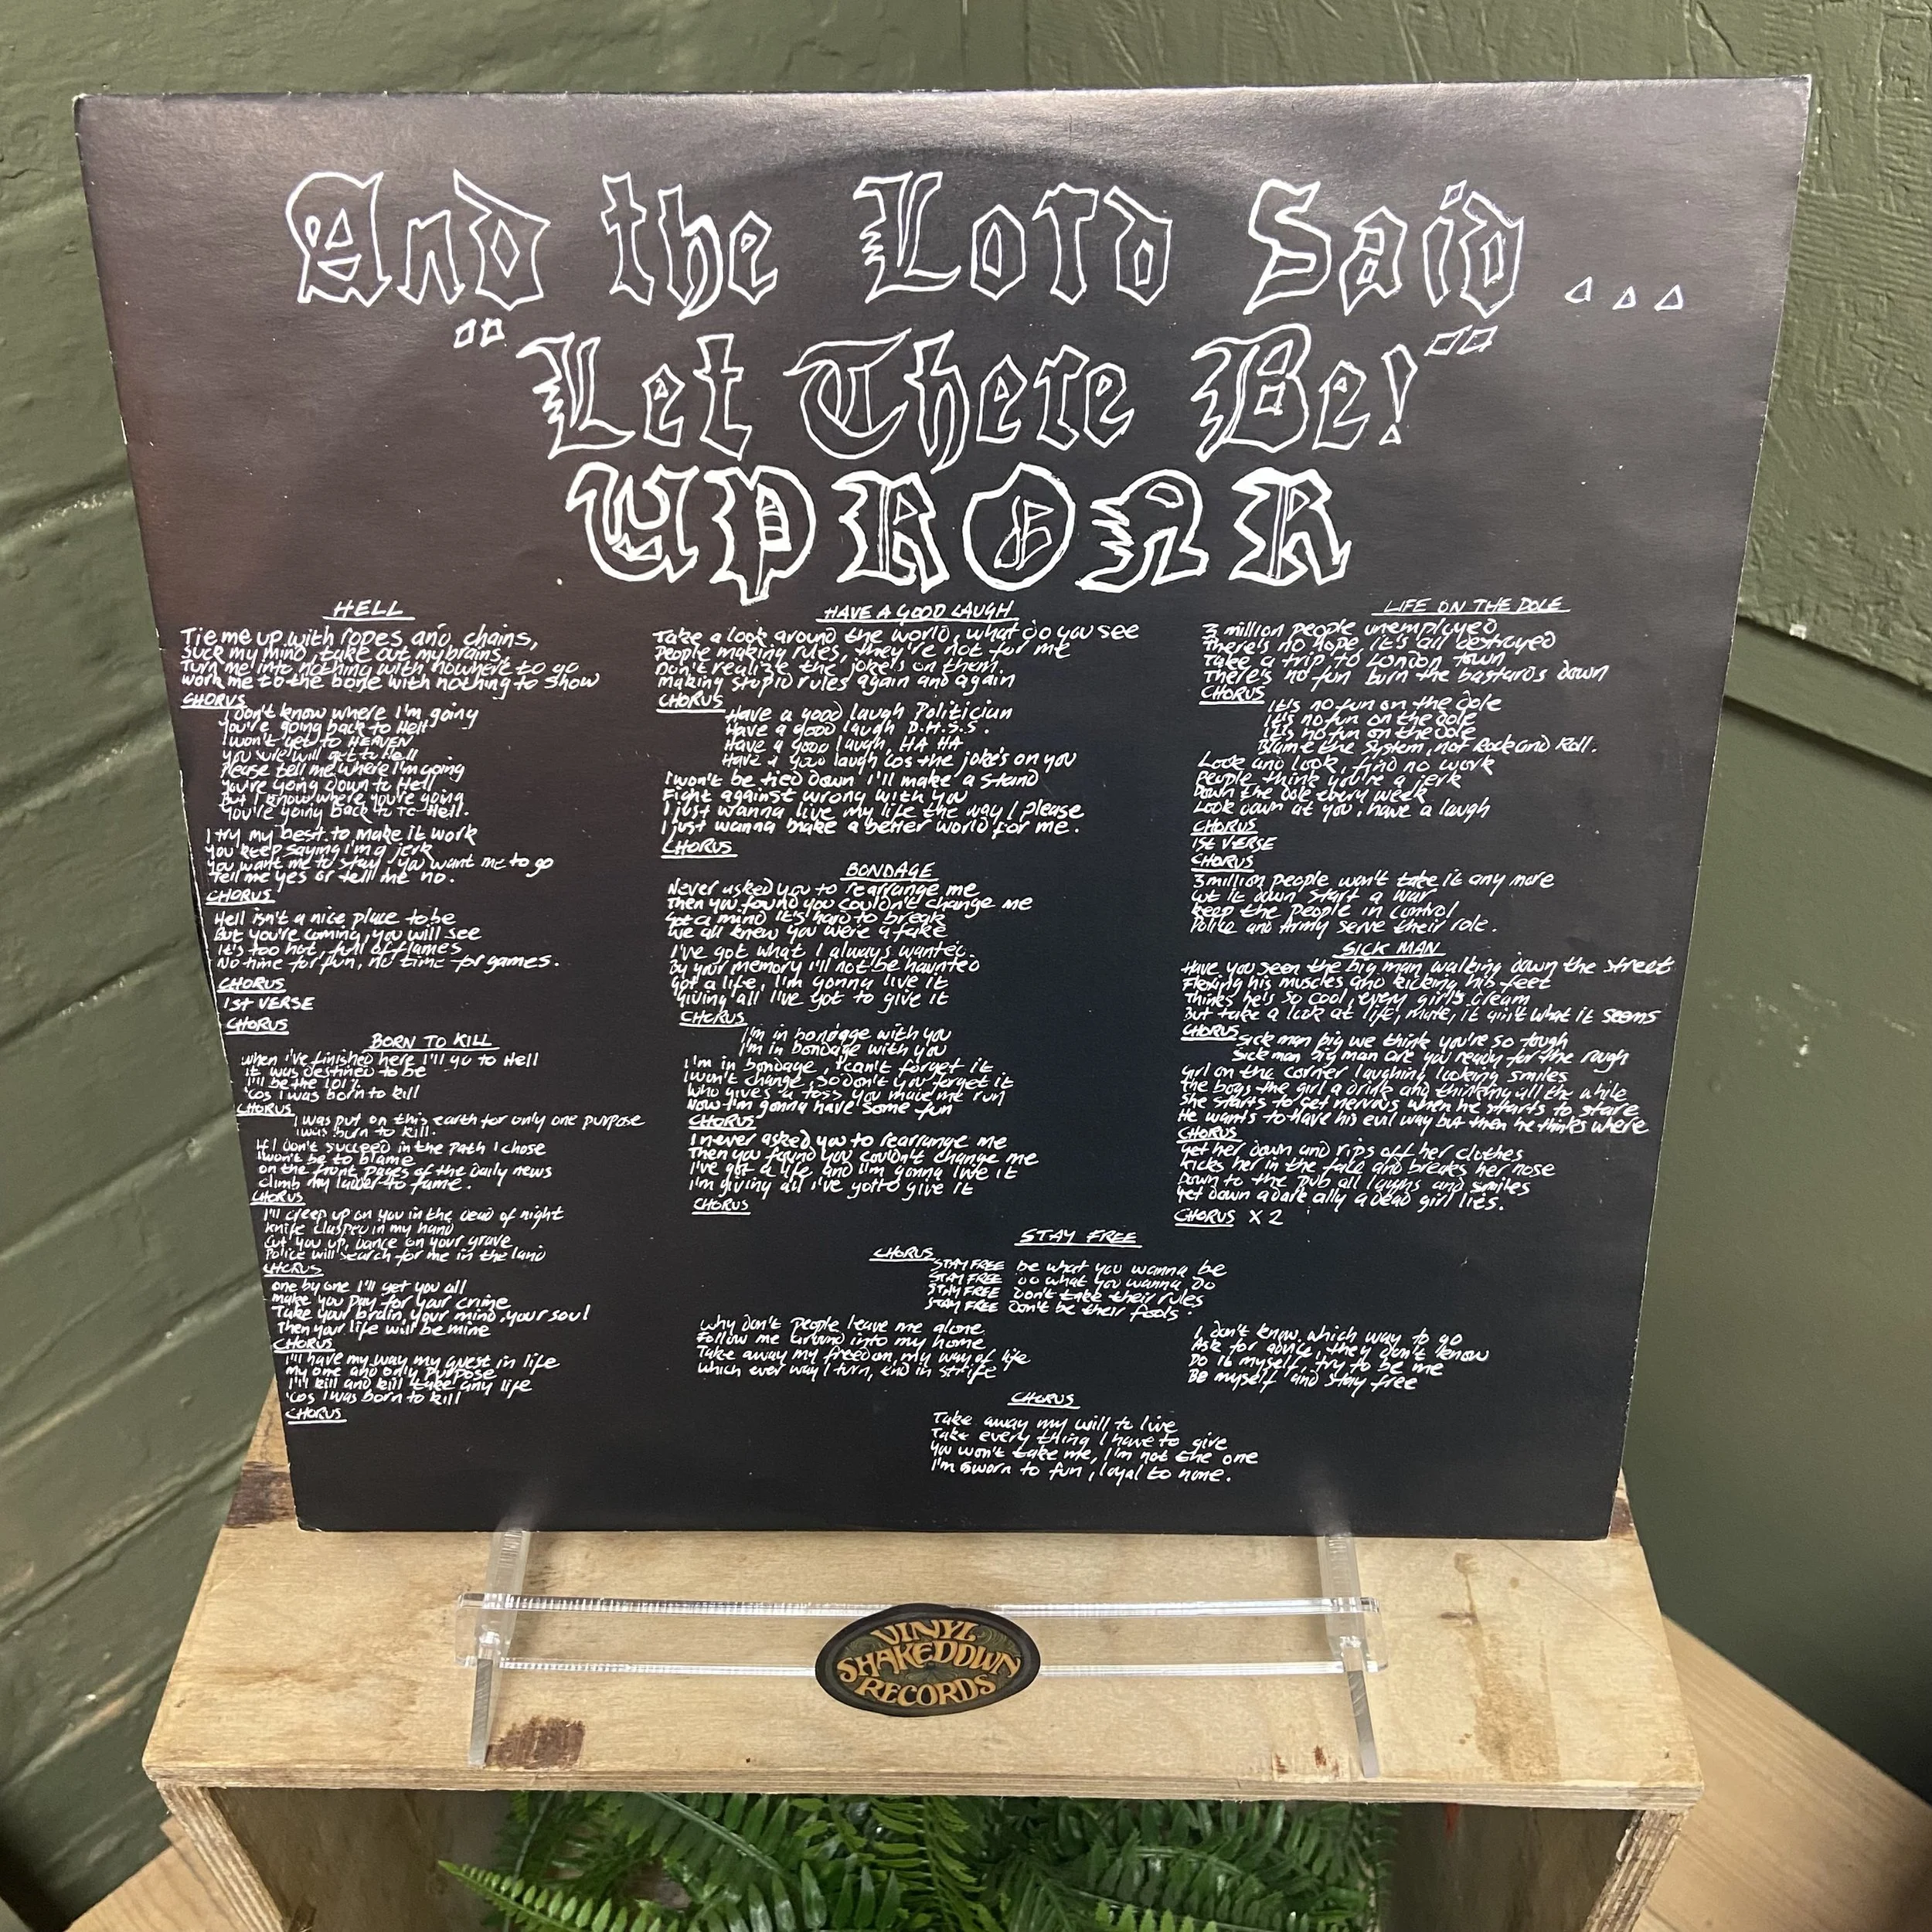 And the Lord Said...
"Let There Be!"
UPROAR
HELL
Tie me up with ropes and chains,
suck my mind, take out my brains,
Turn me into nothing with nowhere to go
work me to the bone with nothing to show
CHORUS
I don't know where I'm going
You're going back to Hell
I won't get to HEAVEN
You sure will get to Hell
Please tell me where I'm going
You're going down to Hell
But I know where you're going
You're going back to Hell.
I try my best to make it work
You keep saying I'm a jerk
You want me to stay, you want me to go
Tell me yes or tell me no.
CHORUS
Hell isn't a nice place to be
But you're coming, you will see
It's too hot, full of flames
No time for fun, no time for games.
CHORUS
1ST VERSE
CHORUS
BORN TO KILL
when I've finished here I'll go to Hell
it was destined to be
I'll be the
'cos I was born to kill
CHORUS
I was put on this earth for only one purpose
I was born to kill.
If I don't succeed in the path I chose
I won't be to blame
on the front pages of the daily news
climb my ladder to fame.
CHORUS
I'll creep up on you in the dead of night
knife clasped in my hand
Cut you up, dance on your grave
Police will search for me in the land
CHORUS
one by one I'll get you all
make you pay for your crime
Take your brain, your mind, your soul
Then your life will be mine
CHORUS
I'll have my way my quest in life
my one and only purpose
I'll kill and kill take any life
'cos I was born to kill
CHORUS
HAVE A GOOD LAUGH
Take a look around the world, what do you see
People making rules, they're not for me
Don't realize the joke's on them.
Making stupid rules again and again
CHORUS
Have a good laugh Politician
Have a good laugh D.H.S.S.
Have a good laugh, HA HA
Have a good laugh cos the joke's on you
I won't be tied down I'll make a stand
Fight against wrong with you
I just wanna live my life the way I please
I just wanna make a better world for me.
CHORUS
BONDAGE
Never asked you to rearrange me
Then you found you couldn't change me
Got a mind it's hard to break
We all knew you were a fake
I've got what I always wanted
By your memory I'll not be haunted
Got a life, I'm gonna live it
Giving all I've got to give it
CHORUS
I'm in bondage with you
I'm in bondage with you
I'm in bondage, I can't forget it
I won't change, so don't you forget it
Who gives a toss you made me run
Now I'm gonna have some fun
CHORUS
I never asked you to rearrange me
Then you found you couldn't change me
I've got a life and I'm gonna live it
I'm giving all I've gotto give it
CHORUS
LIFE ON THE DOLE
3 million people unemployed
There's no hope, it's all destroyed
Take a trip to London town
There's no fun burn the bastards down
CHORUS
It's no fun on the dole
It's no fun on the dole
It's no fun on the dole
Blame the system, not Rock and Roll.
Look and look, find no work
People think you're a jerk
Down the dole every week
Look down at you, have a laugh
CHORUS
1ST VERSE
CHORUS
3 million people won't take it any more
cut it down start a war
keep the people in control
Police and Army serve their role.
SICK MAN
Have you seen the big man walking down the street
Flexing his muscles and kicking his feet
Thinks he's so cool, every girl's dream
But take a look at life, mate, it ain't what it seems
CHORUS
Sick man big we think you're so tough
Sick man big man are you ready for the rough
Girl on the corner laughing looking smiles
the boys the girl a drink and thinking all the while
She starts to get nervous when he starts to stare
He wants to have his evil way but then he thinks where
CHORUS
Get her down and rips off her clothes
Kicks her in the face and breaks her nose
Down to the pub all laughs and smiles
Yet down a dark ally a dead girl lies.
CHORUS X 2
STAY FREE
CHORUS
STAY FREE be what you wanna be
STAY FREE Do what you wanna Do
STAY FREE Don't take their rules
STAY FREE Don't be their fools.
Why don't people leave me alone
Follow me around into my home
Take away my freedom, my way of life
Which ever way I turn, end in strife
I don't know which way to go
Ask for advice, they don't know
Do it myself, try to be me
Be myself and stay free
CHORUS
Take away my will to live
Take every thing I have to give
You won't take me, I'm not the one
I'm sworn to fun, loyal to none.
VINYL
SHAKEDOWN
RECORDS